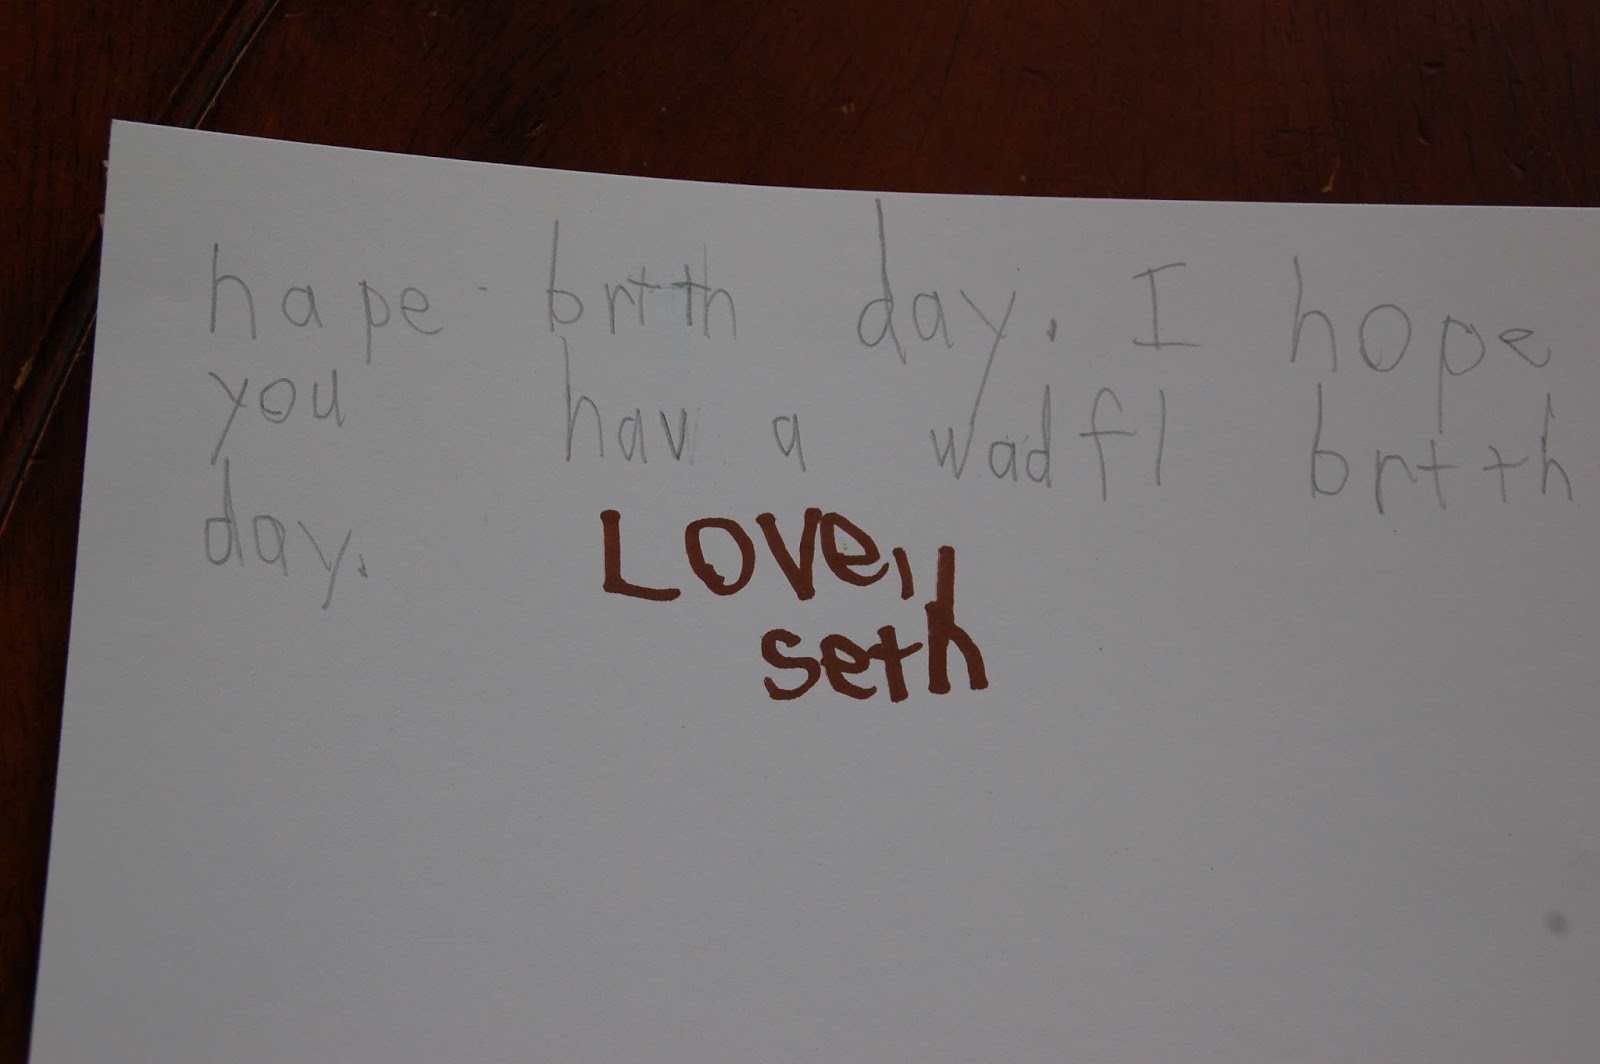 hape brtth day. I hope
you hav a wadfl brtth
day.
Love,
seth